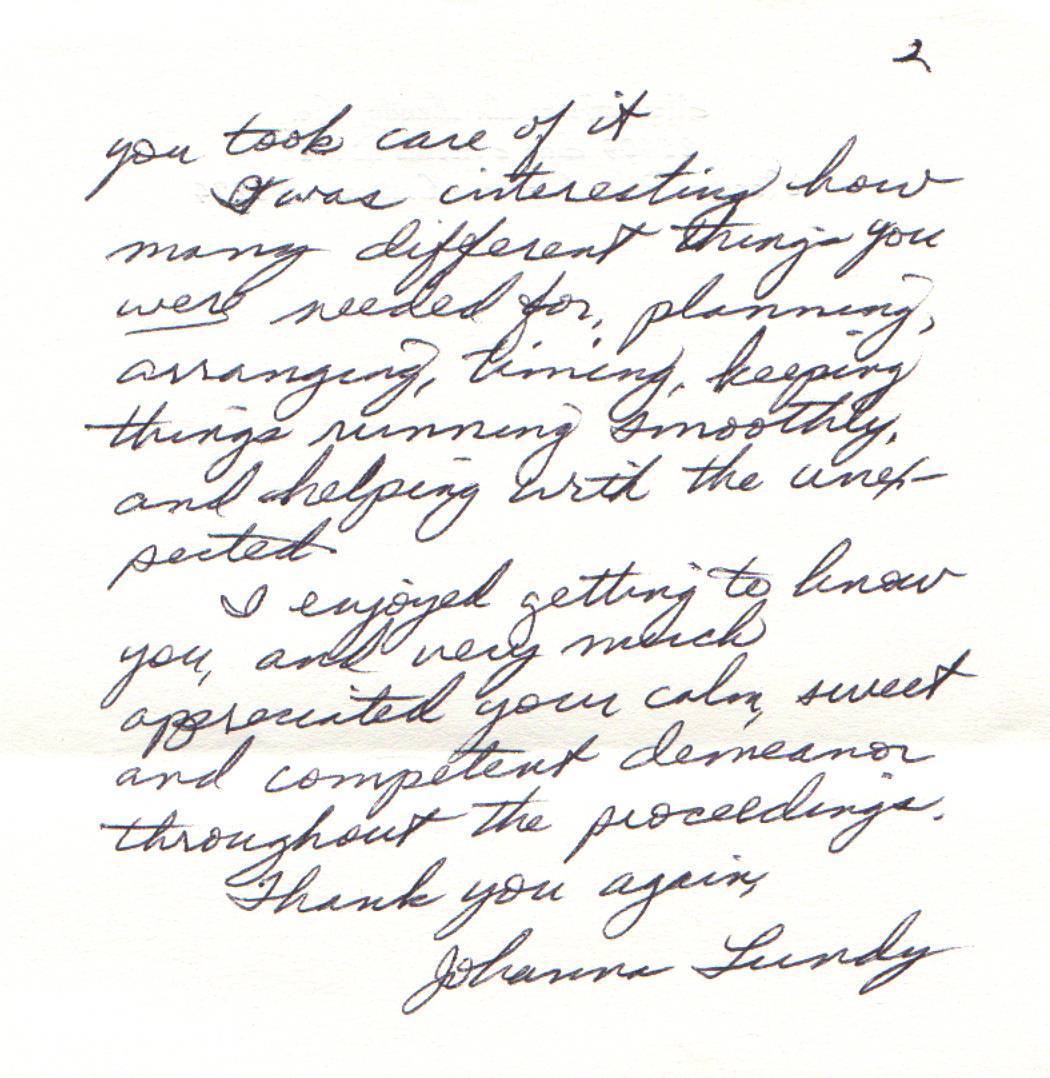 2
you took care of it
It was interesting how
many different things you
were needed for, planning,
arranging, timing, keeping
things running smoothly,
and helping with the unex-
pected.
I enjoyed getting to know
you, and very much
appreciated your calm, sweet
and competent demeanor
throughout the proceedings.
Thank you again,
Johanna Lundy